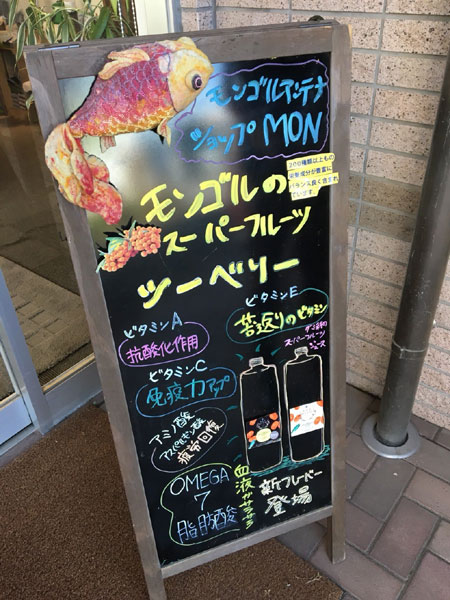 モンゴルアンテナ
ショップMON
200種類以上もの
栄養成分が豊富に
バランス良く含まれ
ています。
モンゴルの
スーパーフルーツ
ツーベリー
ビタミンA
抗酸化作用
ビタミンC
免疫力アップ
アミノ酸
アスパラギン酸
疲労回復
OMEGA
7
脂肪酸
ビタミンE
若返りのビタミン
スーパーフルーツ
ジュース
血液サラサラ
新フレーバー
登場